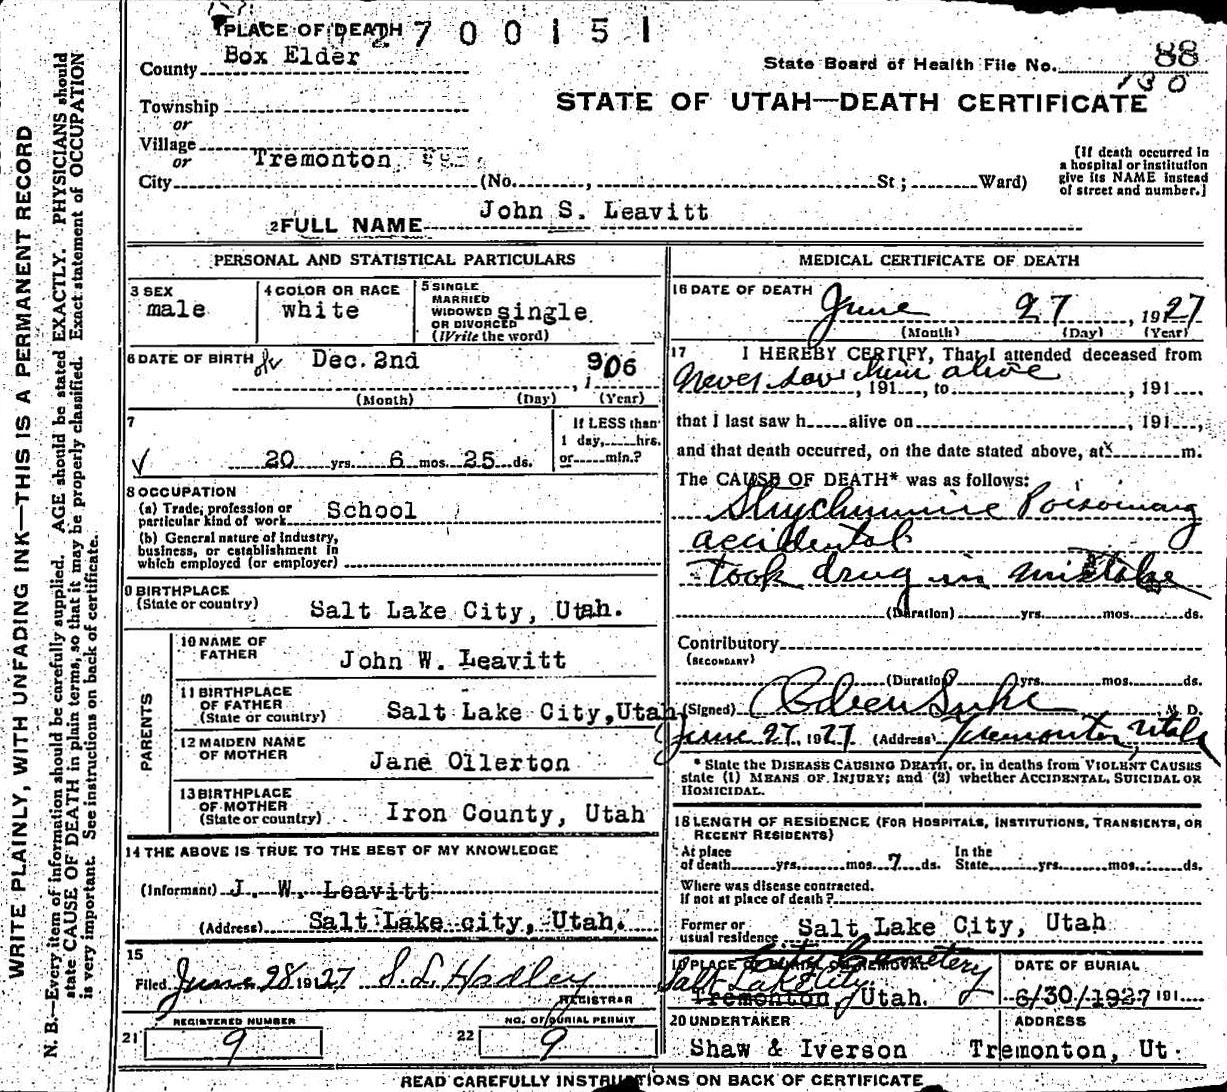 PLACE OF DEATH
2700151
County Box Elder
State Board of Health File No. 88
130
STATE OF UTAH—DEATH CERTIFICATE
Township
or
Village
or
Tremonton
City (No. , St; Ward)
[If death occurred in
a hospital or institution
give its NAME instead
of street and number.]
2 FULL NAME John S. Leavitt
PERSONAL AND STATISTICAL PARTICULARS
3 SEX
male
4 COLOR OR RACE
white
5 SINGLE
MARRIED
WIDOWED
OR DIVORCED
(Write the word)
single
6 DATE OF BIRTH Dec. 2nd , 1906
(Month) (Day) (Year)
7
20 yrs. 6 mos. 25 ds.
If LESS than
1 day, hrs.
or min.?
8 OCCUPATION
(a) Trade, profession or
particular kind of work School
(b) General nature of industry,
business, or establishment in
which employed (or employer)
9 BIRTHPLACE
(State or country) Salt Lake City, Utah.
PARENTS
10 NAME OF
FATHER John W. Leavitt
11 BIRTHPLACE
OF FATHER
(State or country) Salt Lake City, Utah
12 MAIDEN NAME
OF MOTHER Jane Ollerton
13 BIRTHPLACE
OF MOTHER
(State or country) Iron County, Utah
14 THE ABOVE IS TRUE TO THE BEST OF MY KNOWLEDGE
(Informant) J. W. Leavitt
(Address) Salt Lake city, Utah.
15
Filed June 28 1927 S. L. Hadley
REGISTRAR
REGISTERED NUMBER
21 9
NO. OF BURIAL PERMIT
22 9
MEDICAL CERTIFICATE OF DEATH
16 DATE OF DEATH June 27 , 1927
(Month) (Day) (Year)
17 I HEREBY CERTIFY, That I attended deceased from
Never saw him alive , 191 , to , 191 ,
that I last saw h alive on , 191 ,
and that death occurred, on the date stated above, at m.
The CAUSE OF DEATH* was as follows:
Strychunine Poisoning
accidental
took drug in mistake
(Duration) yrs. mos. ds.
Contributory
(SECONDARY)
(Duration) yrs. mos. ds.
(Signed) M. D.
June 27, 1927 (Address) Tremonton, Utah
* State the DISEASE CAUSING DEATH, or, in deaths from VIOLENT CAUSES
state (1) MEANS OF INJURY; and (2) whether ACCIDENTAL, SUICIDAL OR
HOMICIDAL.
18 LENGTH OF RESIDENCE (FOR HOSPITALS, INSTITUTIONS, TRANSIENTS, OR
RECENT RESIDENTS)
At place
of death yrs. mos. 7 ds.
In the
State yrs. mos. ds.
Where was disease contracted,
if not at place of death?
Former or
usual residence Salt Lake City, Utah
19 PLACE OF BURIAL OR REMOVAL
City Cemetery
Salt Lake City
Tremonton, Utah.
DATE OF BURIAL
6/30/1927 191
20 UNDERTAKER
Shaw & Iverson
ADDRESS
Tremonton, Ut.
READ CAREFULLY INSTRUCTIONS ON BACK OF CERTIFICATE
WRITE PLAINLY, WITH UNFADING INK—THIS IS A PERMANENT RECORD
N. B.—Every item of information should be carefully supplied. AGE should be stated EXACTLY. PHYSICIANS should
state CAUSE OF DEATH in plain terms, so that it may be properly classified. Exact statement of OCCUPATION
is very important. See instructions on back of certificate.